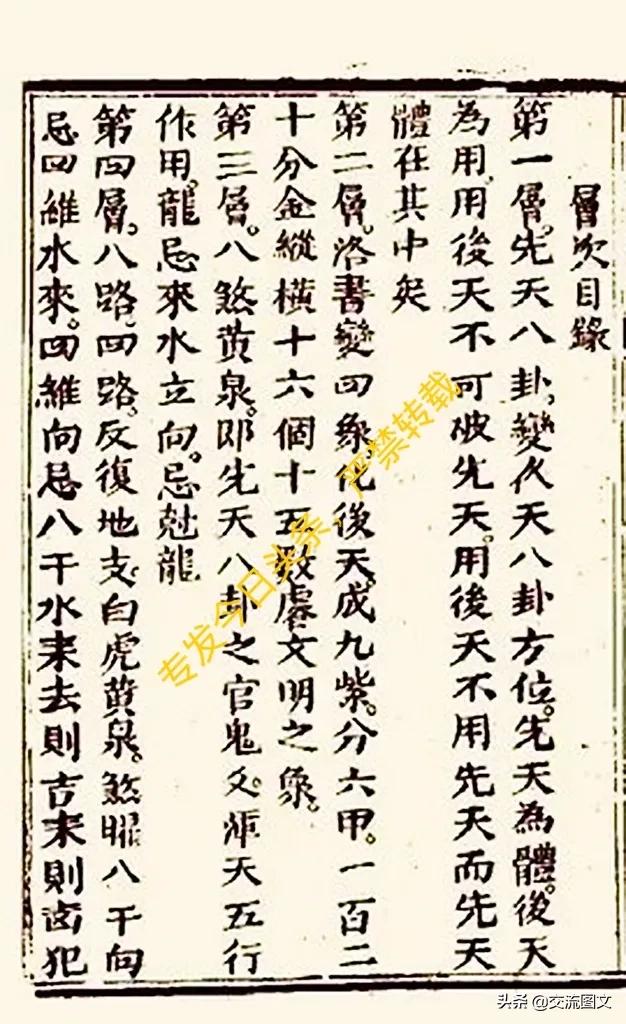 層次目錄
第一層。先天八卦。變後天八卦方位。先天為體。後天
為用。用後天不可破先天。用後天不用先天而先天
體在其中矣
第二層。洛書變四象。化後天。成九紫。分六甲。一百二
十分金縱橫十六個十五數處文明之象。
第三層。八煞黃泉。即先天八卦之官鬼爻。渾天五行
作用。龍忌來水立向。忌尅龍
第四層。八路四路。反復地支白虎黃泉。煞曜八干向
忌四維水來。四維向忌八干水来去則吉来則凶犯
专发今日头条，严禁转载
头条 @交流图文